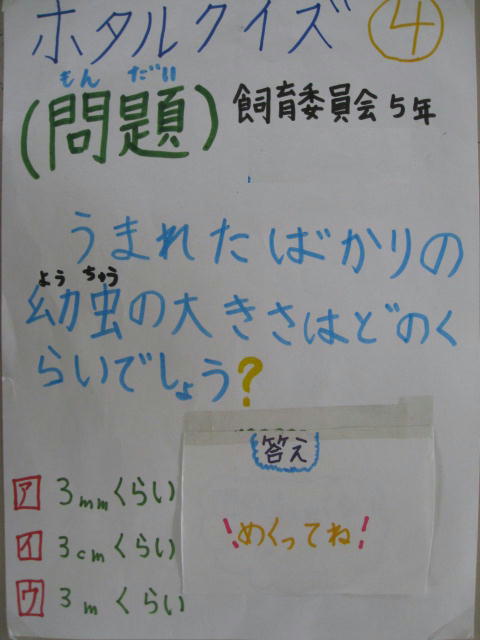 ホタルクイズ ④
もん だい
(問題) 飼育委員会5年
うまれたばかりの
よう ちゅう
幼虫の大きさはどのく
らいでしょう?
答え
ア 3mmくらい
!めくってね!
イ 3cmくらい
ウ 3m くらい